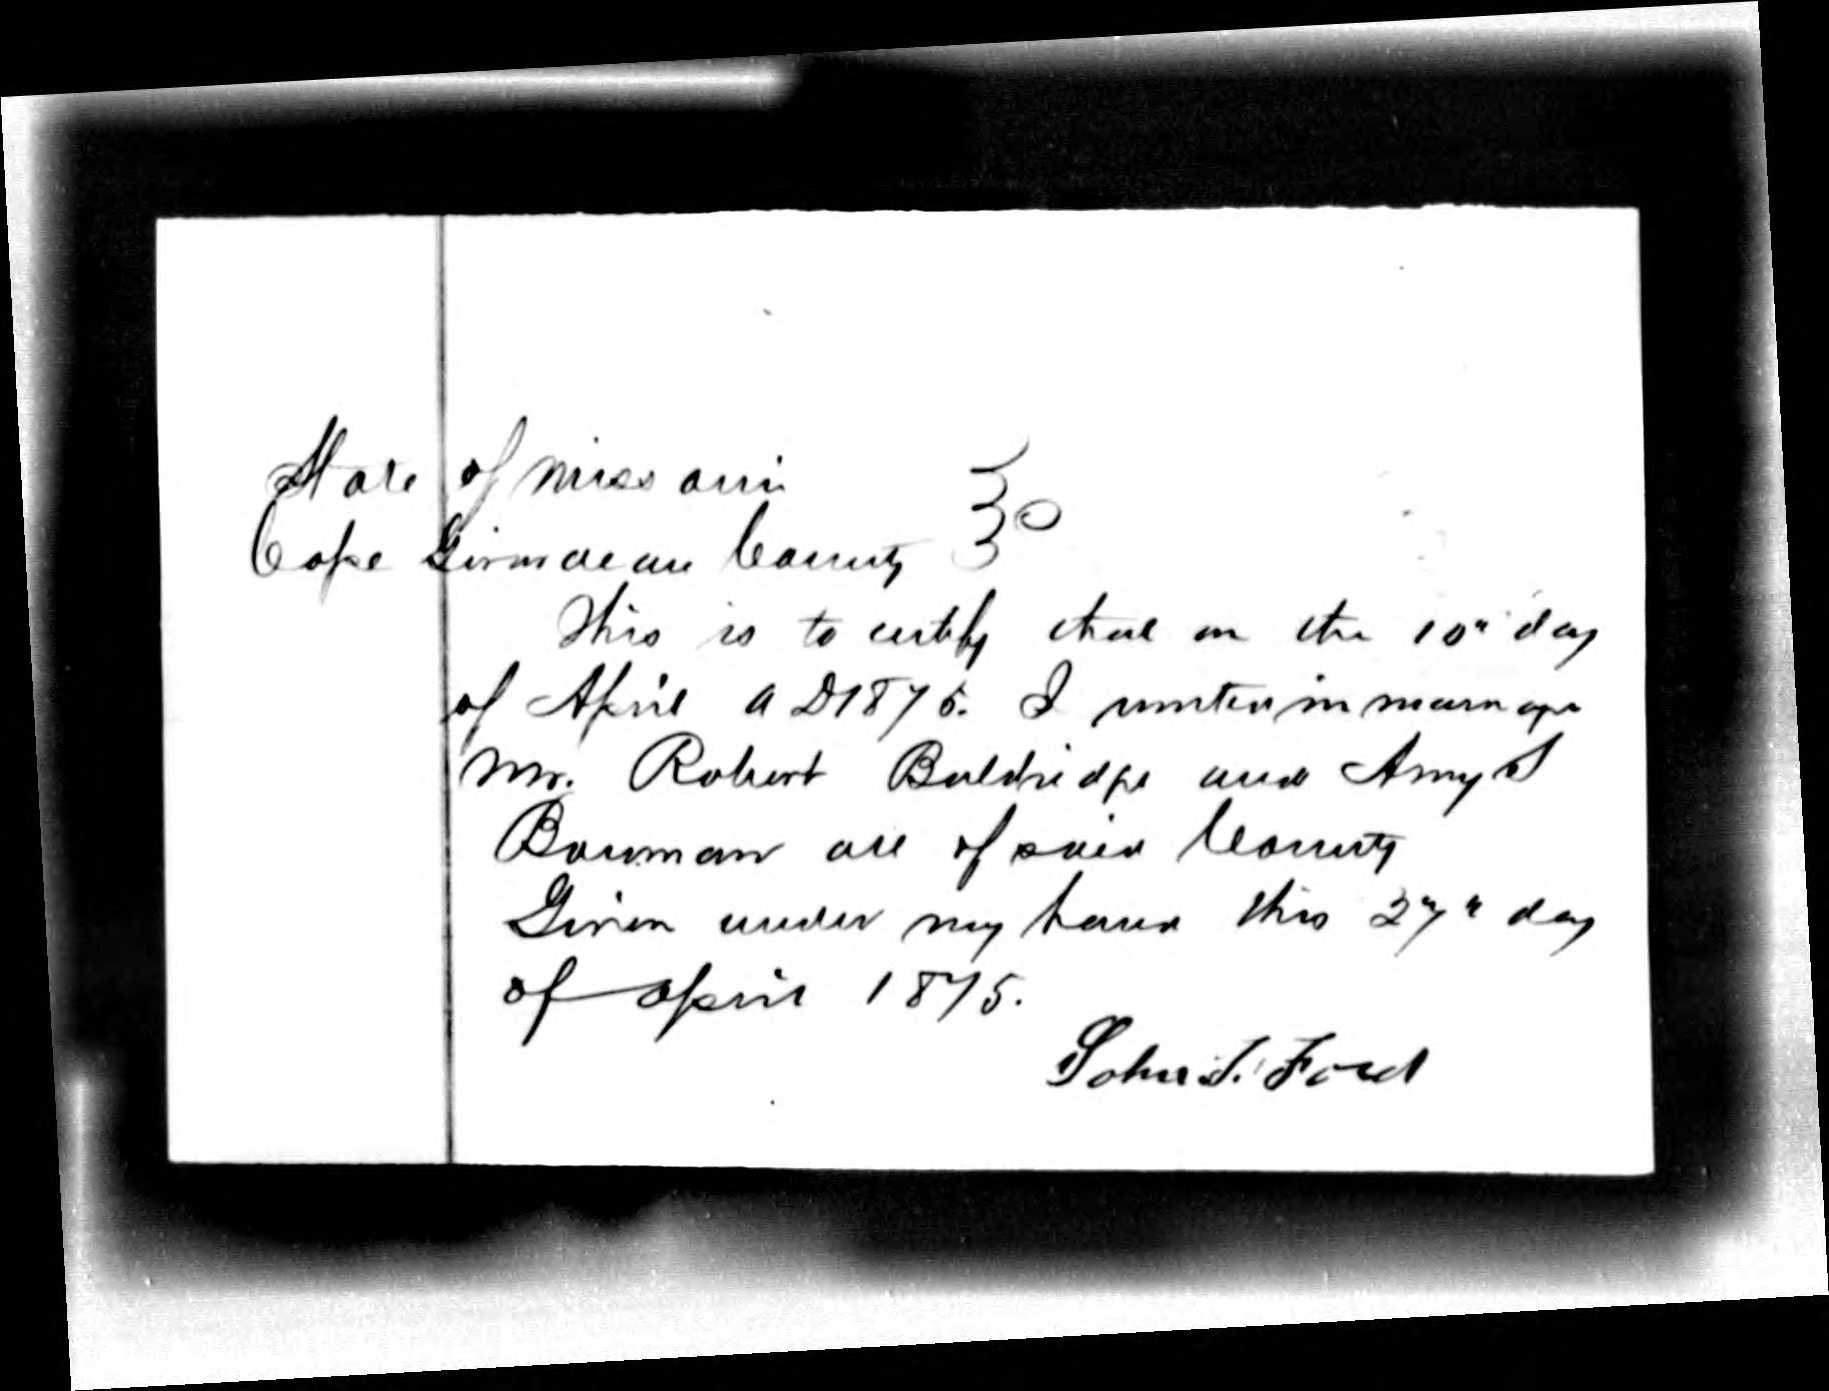 State of Missouri
Cape Girardeau County
This is to certify that on the 10" day
of April A D 1875. I united in marriage
Mr. Robert Baldridge and Amy S
Bowman all of said County
Given under my hand this 27" day
of April 1875.
John T. Ford